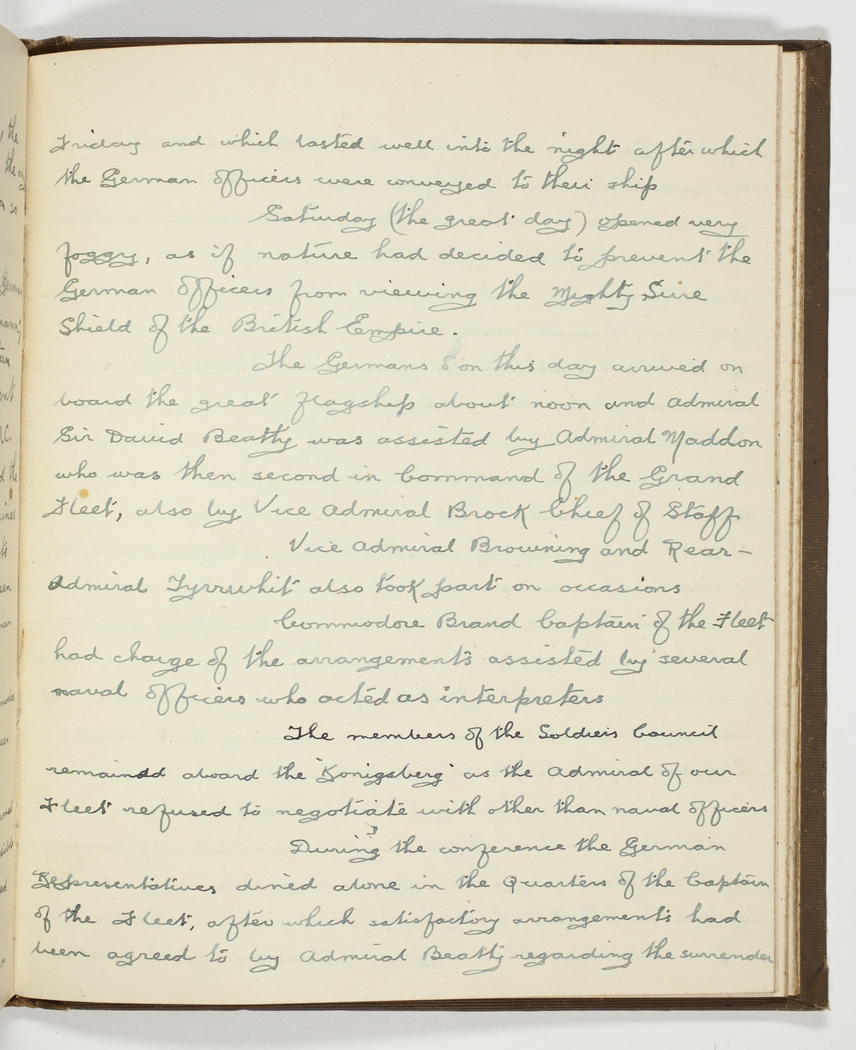 Friday and which lasted well into the night after which
the German officers were conveyed to their ship
Saturday (the great day) opened very
foggy, as if nature had decided to prevent the
German officers from viewing the Mighty Sure
Shield of the British Empire.
The Germans on this day arrived on
board the great flagship about noon and Admiral
Sir David Beatty was assisted by Admiral Maddon
who was then second in Command of the Grand
Fleet, also by Vice Admiral Brock Chief of Staff
Vice Admiral Browning and Rear-
Admiral Tyrrwhit also took part on occasions
Commodore Brand Captain of the Fleet
had charge of the arrangements assisted by several
naval officers who acted as interpreters
The members of the Soldiers Council
remained aboard the 'Konigsberg' as the Admiral of our
Fleet refused to negotiate with other than naval officers
During the conference the German
Representatives dined alone in the Quarters of the Captain
of the Fleet, after which satisfactory arrangements had
been agreed to by Admiral Beatty regarding the surrender